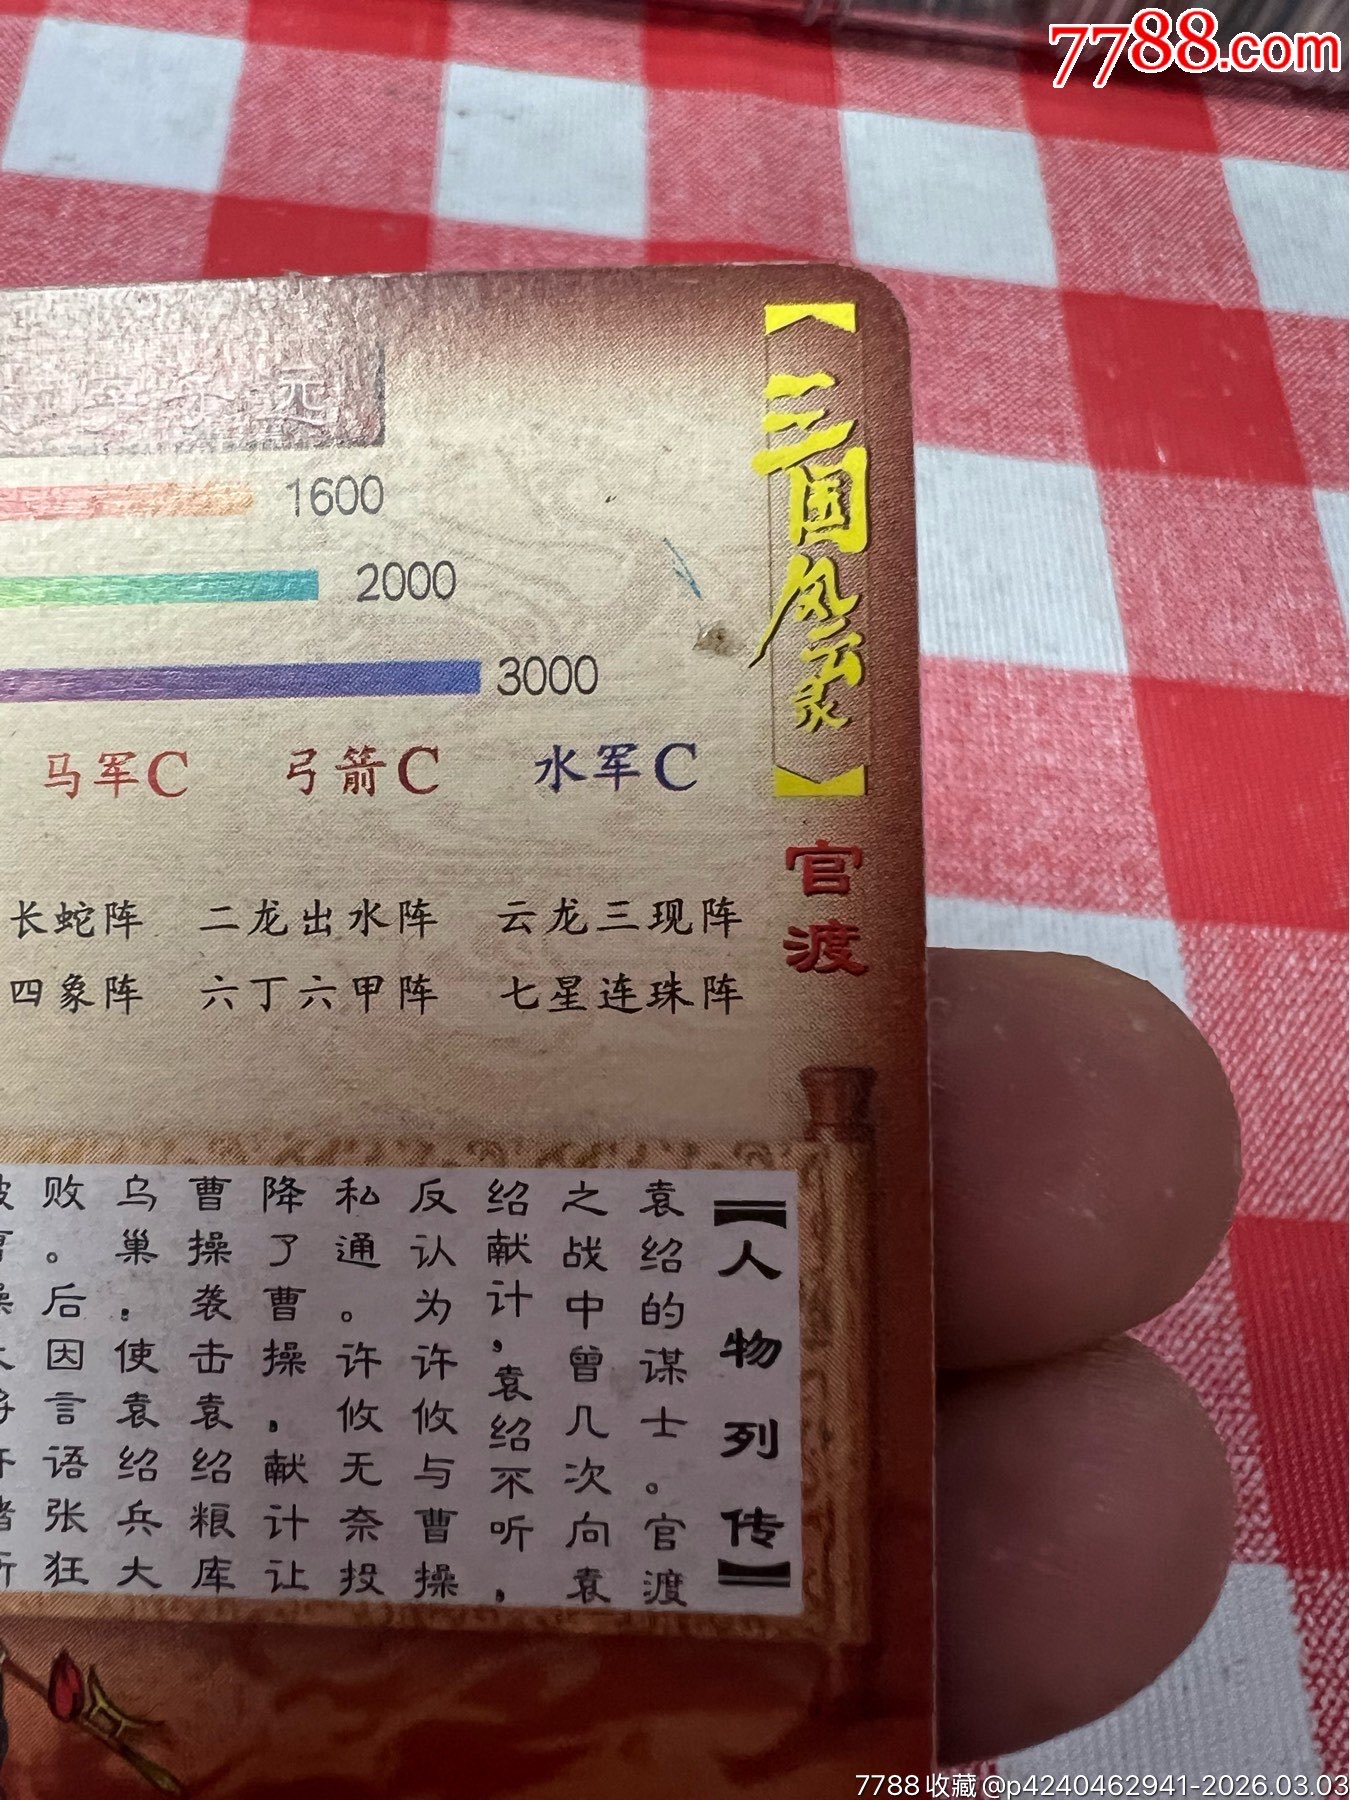 7788.com
字子远
1600
2000
3000
马军C 弓箭C 水军C
长蛇阵 二龙出水阵 云龙三现阵
四象阵 六丁六甲阵 七星连珠阵
【三国风云录】
官渡
【人物列传】
袁绍的谋士。官渡
之战中曾几次向袁
绍献计,袁绍不听,
反认为许攸与曹操
私通。许攸无奈投
降了曹操,献计让
曹操袭击袁绍粮库
乌巢,使袁绍兵大
败。后因言语张狂
7788收藏@p4240462941-2026.03.03